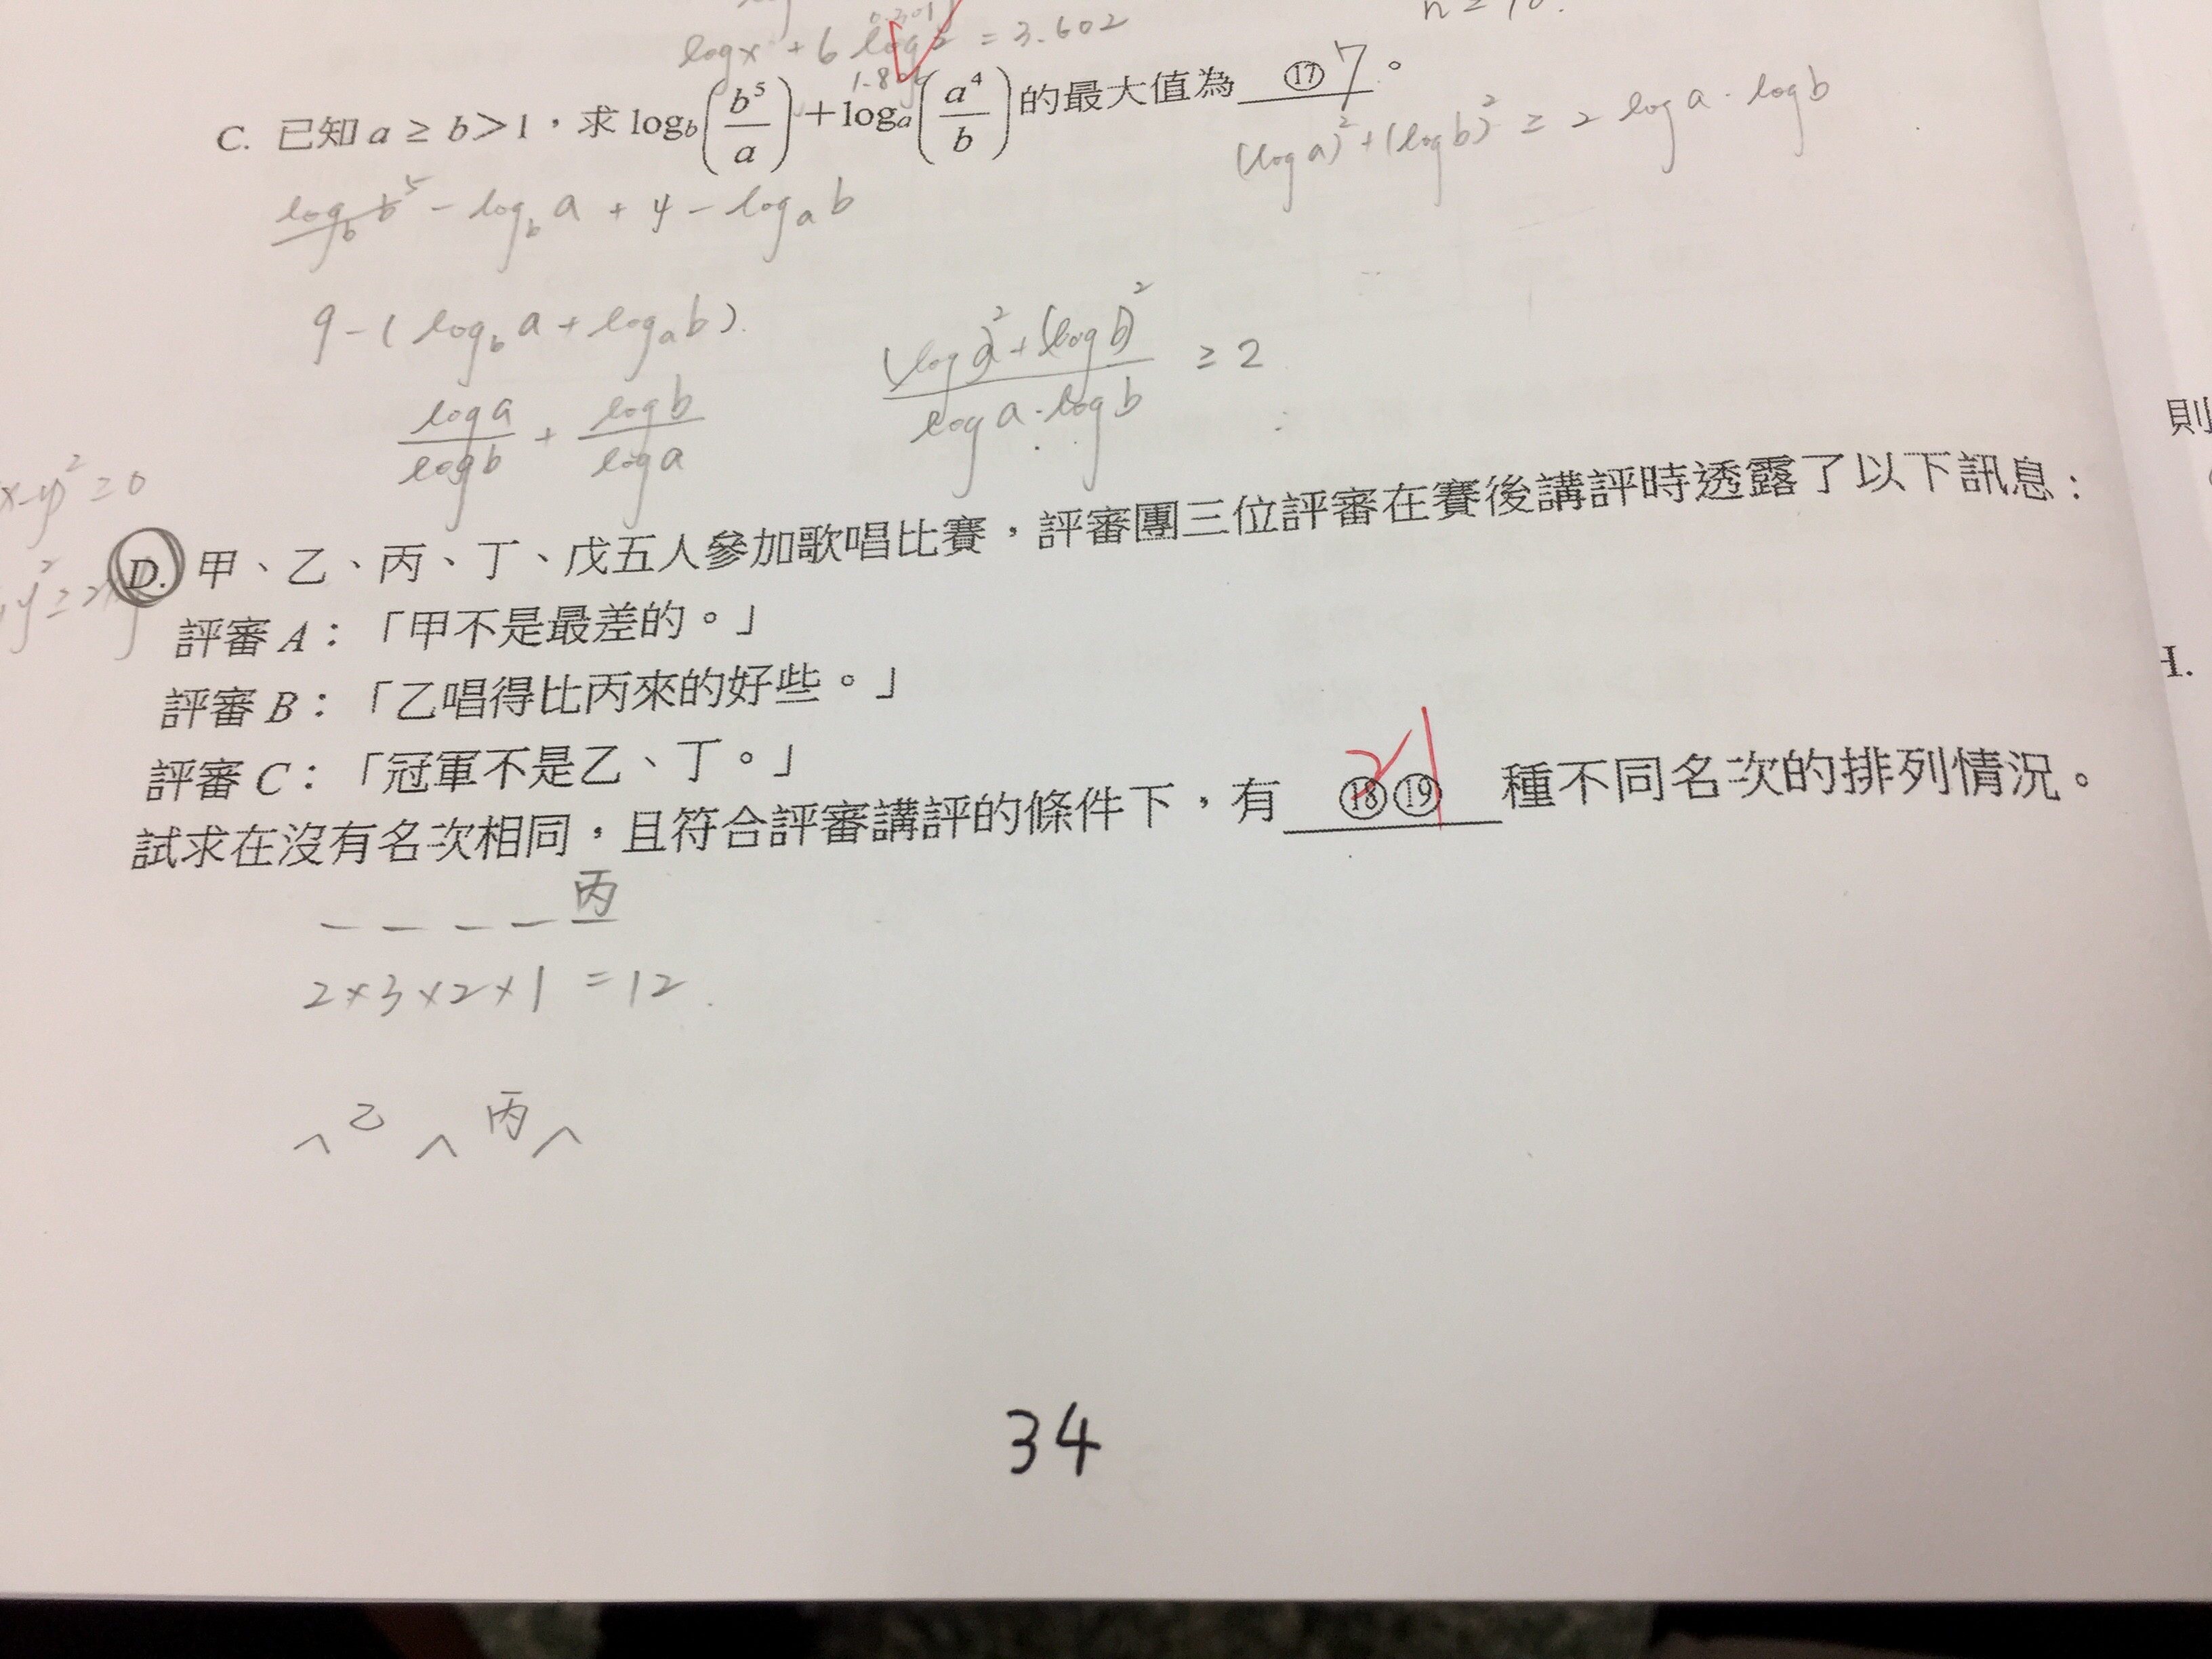 log x + 6 log 2 = 3.602
0.301
1.8
C. 已知 a ≥ b>1，求 log_b(b^5/a)+log_a(a^4/b)的最大值為 ⑰ 7 。
(log a)^2 + (log b)^2 ≥ 2 log a · log b
log_b b^5 - log_b a + 4 - log_a b
9 - ( log_b a + log_a b ).
log a / log b + log b / log a
(log a)^2 + (log b)^2 / log a · log b ≥ 2
則
x-y)^2 ≥ 0
D. 甲、乙、丙、丁、戊五人參加歌唱比賽，評審團三位評審在賽後講評時透露了以下訊息：
評審 A：「甲不是最差的。」
評審 B：「乙唱得比丙來的好些。」
評審 C：「冠軍不是乙、丁。」
試求在沒有名次相同，且符合評審講評的條件下，有 ⑱⑲ 種不同名次的排列情況。
21
丙
2×3×2×1 = 12 .
^ 乙 ^ 丙 ^
34